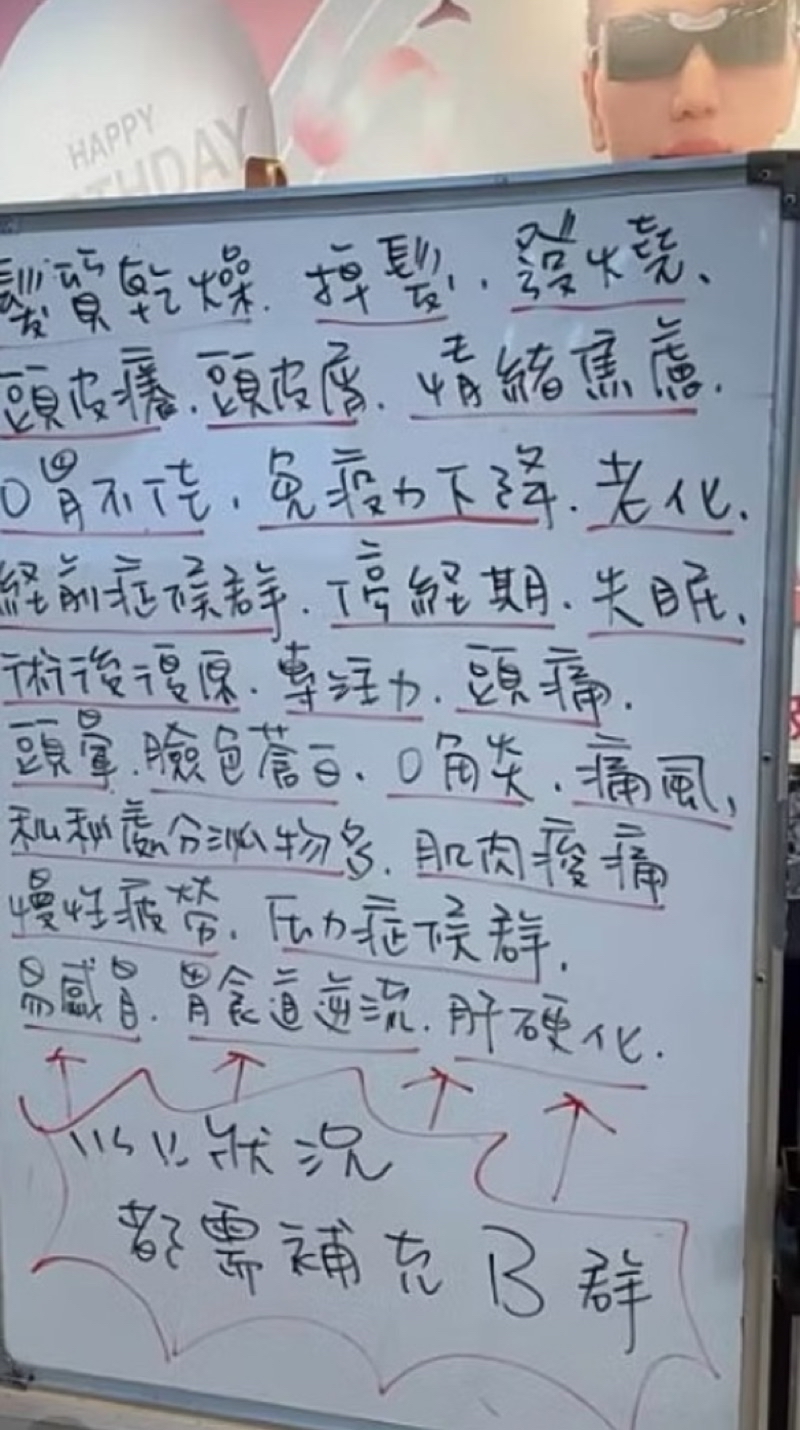 HAPPY
BIRTHDAY
髮質乾燥.掉髮、發燒、
頭皮癢.頭皮屑.情緒焦慮.
口胃不佳、免疫力下降.老化.
経前症候群.停経期.失眠、
術後復原.專注力.頭痛.
頭暈.臉色蒼白、口角炎.痛風、
私秘處分泌物多.肌肉痠痛
慢性疲勞.压力症候群.
易感冒.胃食道逆流.肝硬化.
以上狀況
都需補充B群